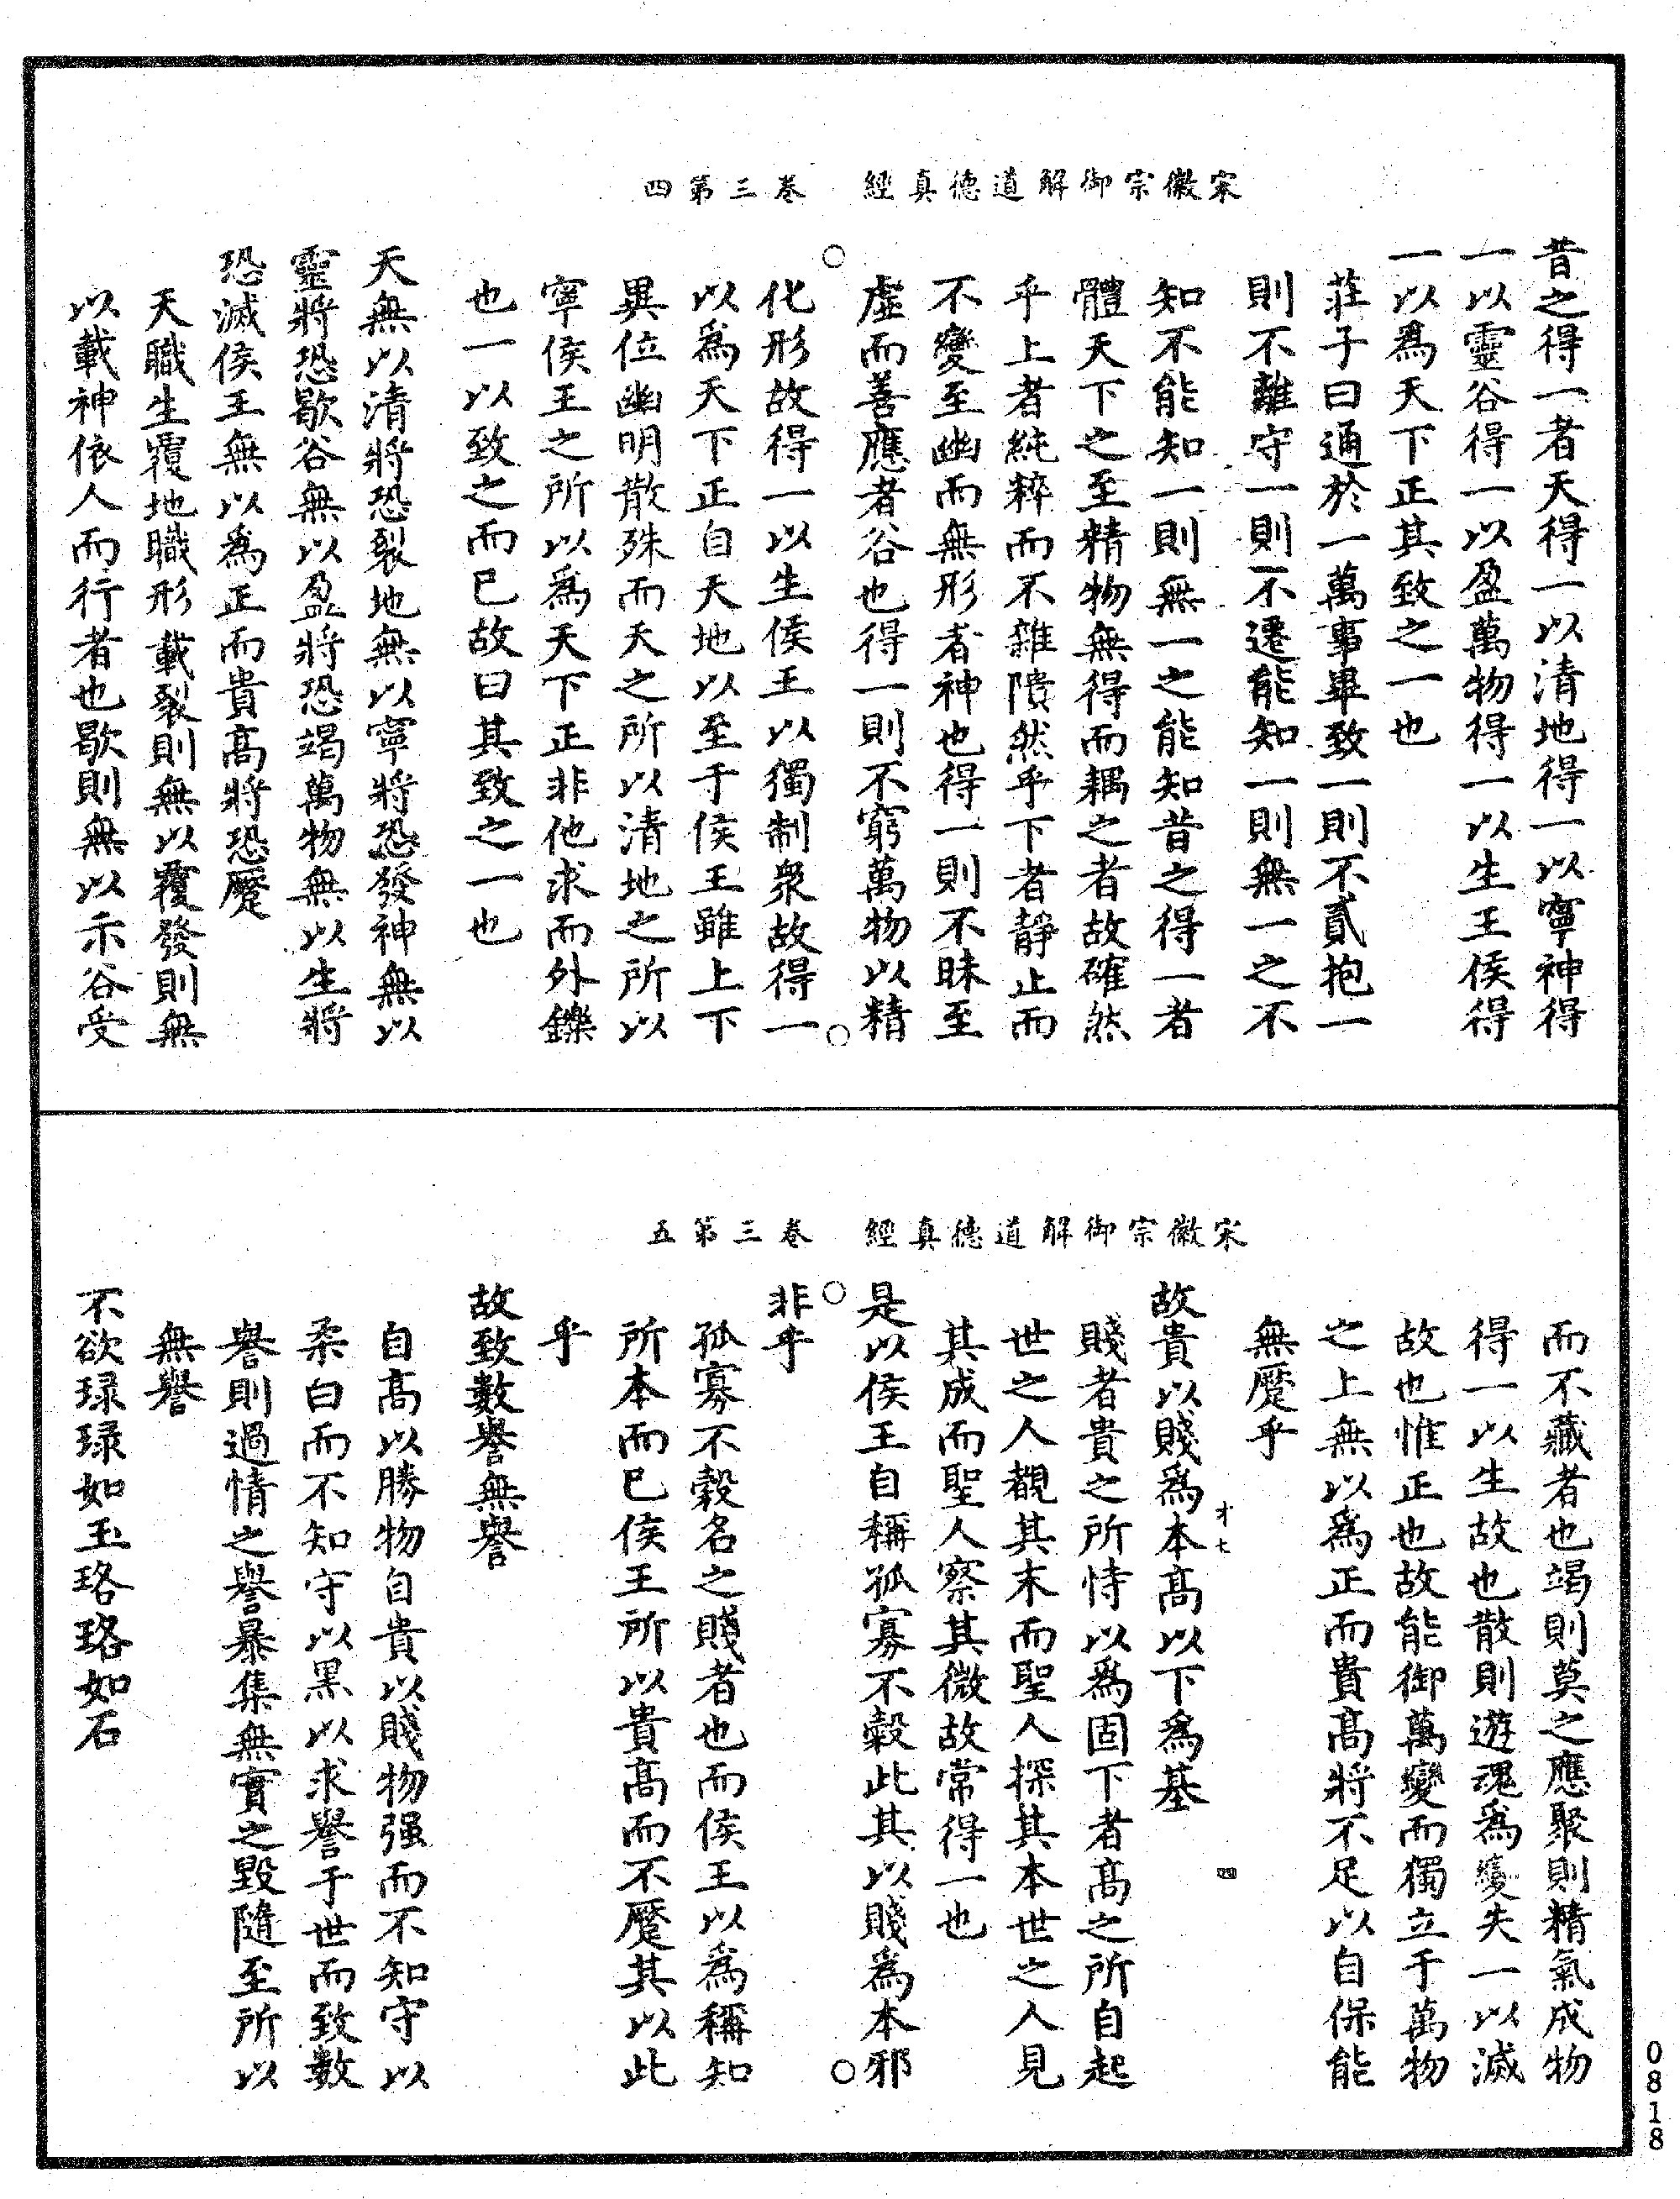 宋徽宗御解道德真經　卷三第四
昔之得一者天得一以清地得一以寧神得
一以靈谷得一以盈萬物得一以生王侯得
一以為天下正其致之一也
莊子曰通於一萬事畢致一則不貳抱一
則不離守一則不遷能知一則無一之不
知不能知一則無一之能知昔之得一者
體天下之至精物無得而耦之者故確然
乎上者純粹而不雜隤然乎下者靜止而
不變至幽而無形者神也得一則不昧至
虛而善應者谷也得一則不窮萬物以精
化形故得一以生侯王以獨制衆故得一
以為天下正自天地以至于侯王雖上下
異位幽明散殊而天之所以清地之所以
寧侯王之所以為天下正非他求而外鑠
也一以致之而已故曰其致之一也
天無以清將恐裂地無以寧將恐發神無以
靈將恐歇谷無以盈將恐竭萬物無以生將
恐滅侯王無以為正而貴高將恐蹷
天職生覆地職形載裂則無以覆發則無
以載神依人而行者也歇則無以示谷受
宋徽宗御解道德真經　卷三第五
而不藏者也竭則莫之應聚則精氣成物
得一以生故也散則遊魂為變失一以滅
故也惟正也故能御萬變而獨立于萬物
之上無以為正而貴高將不足以自保能
無蹷乎
才七　四
故貴以賤為本高以下為基
賤者貴之所恃以為固下者高之所自起
世之人覩其末而聖人探其本世之人見
其成而聖人察其微故常得一也
是以侯王自稱孤寡不穀此其以賤為本邪
非乎
孤寡不穀名之賤者也而侯王以為稱知
所本而已侯王所以貴高而不蹷其以此
乎
故致數譽無譽
自高以勝物自貴以賤物强而不知守以
柔白而不知守以黑以求譽于世而致數
譽則過情之譽暴集無實之毀隨至所以
無譽
不欲琭琭如玉珞珞如石
0818